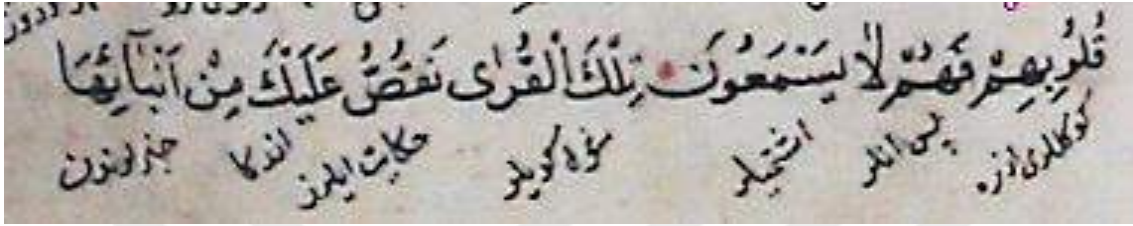 قُلُوبِهِمْ فَهُمْ لَا يَسْمَعُونَ تِلْكَ الْقُرٰى نَقُصُّ عَلَيْكَ مِنْ اَنْبَٓائِهَا
كوكللرى اوزره پس انلر اشتميلر كويلر حكايت ايلرز خبرلرندن